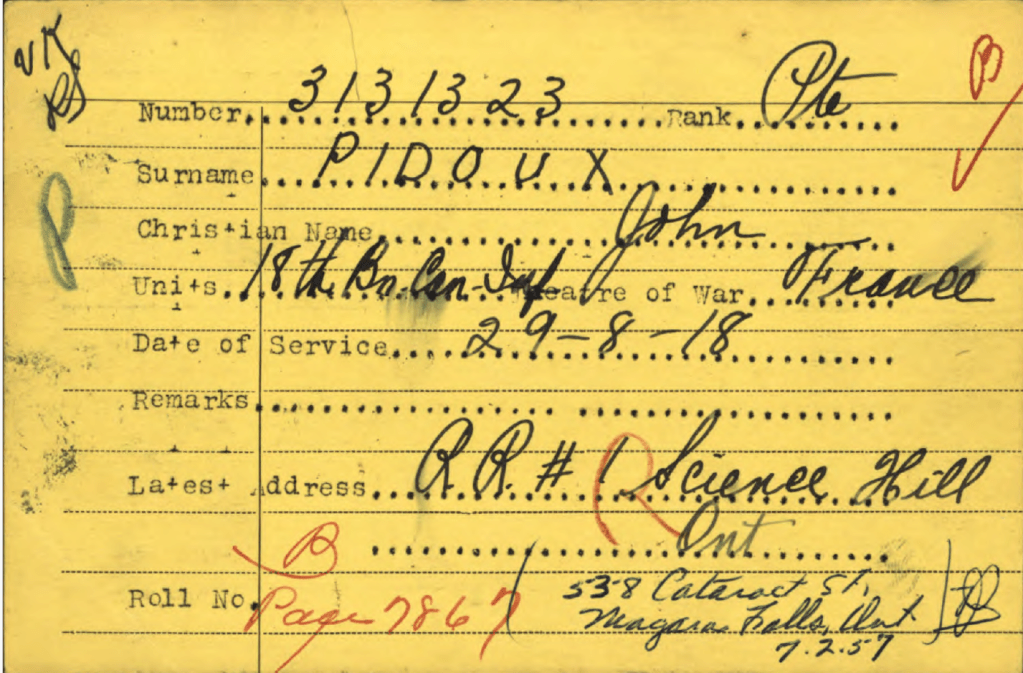 VK
B
Number 3131323 Rank Pte
Surname PIDOUX
P
Christian Name John
Units 18th Bn. Can. Inf Theatre of War France
Date of Service 29-8-18
Remarks
Latest Address R.R. # 1 Science Hill
R
Ont
B
Roll No. Page 7867
(538 Cataract St,
Niagara Falls, Ont)
7.2.57